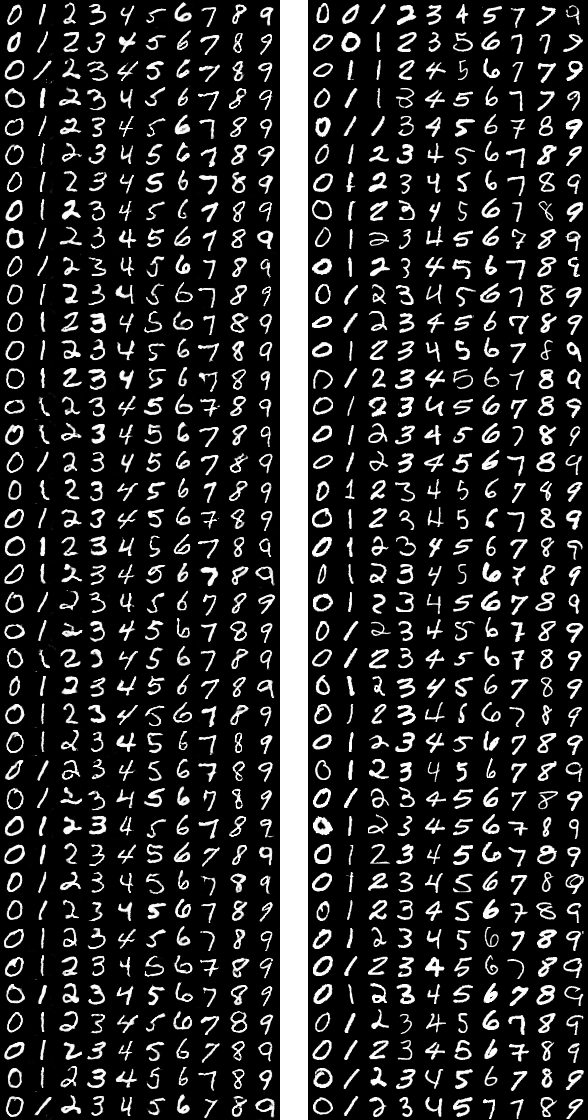 0 1 2 3 4 5 6 7 8 9
0 1 2 3 4 5 6 7 8 9
0 1 2 3 4 5 6 7 8 9
0 1 2 3 4 5 6 7 8 9
0 1 2 3 4 5 6 7 8 9
0 1 2 3 4 5 6 7 8 9
0 1 2 3 4 5 6 7 8 9
0 1 2 3 4 5 6 7 8 9
0 1 2 3 4 5 6 7 8 9
0 1 2 3 4 5 6 7 8 9
0 1 2 3 4 5 6 7 8 9
0 1 2 3 4 5 6 7 8 9
0 1 2 3 4 5 6 7 8 9
0 1 2 3 4 5 6 7 8 9
0 1 2 3 4 5 6 7 8 9
0 1 2 3 4 5 6 7 8 9
0 1 2 3 4 5 6 7 8 9
0 1 2 3 4 5 6 7 8 9
0 1 2 3 4 5 6 7 8 9
0 1 2 3 4 5 6 7 8 9
0 1 2 3 4 5 6 7 8 9
0 1 2 3 4 5 6 7 8 9
0 1 2 3 4 5 6 7 8 9
0 1 2 3 4 5 6 7 8 9
0 1 2 3 4 5 6 7 8 9
0 1 2 3 4 5 6 7 8 9
0 1 2 3 4 5 6 7 8 9
0 1 2 3 4 5 6 7 8 9
0 1 2 3 4 5 6 7 8 9
0 1 2 3 4 5 6 7 8 9
0 1 2 3 4 5 6 7 8 9
0 1 2 3 4 5 6 7 8 9
0 1 2 3 4 5 6 7 8 9
0 1 2 3 4 5 6 7 8 9
0 1 2 3 4 5 6 7 8 9
0 1 2 3 4 5 6 7 8 9
0 1 2 3 4 5 6 7 8 9
0 1 2 3 4 5 6 7 8 9
0 1 2 3 4 5 6 7 8 9
0 1 2 3 4 5 6 7 8 9
0 0 1 2 3 4 5 7 7 9
0 0 1 2 3 5 6 7 7
0 1 1 2 4 5 6 7 7 9
0 1 1 3 4 5 6 7 7 9
0 1 1 3 4 5 6 7 8 9
0 1 2 3 4 5 6 7 8 9
0 1 2 3 4 5 6 7 8 9
0 1 2 3 4 5 6 7 8 9
0 1 2 3 4 5 6 7 8 9
0 1 2 3 4 5 6 7 8 9
0 1 2 3 4 5 6 7 8 9
0 1 2 3 4 5 6 7 8 9
0 1 2 3 4 5 6 7 8 9
0 1 2 3 4 5 6 7 8 9
0 1 2 3 4 5 6 7 8 9
0 1 2 3 4 5 6 7 8 9
0 1 2 3 4 5 6 7 8 9
0 1 2 3 4 5 6 7 8 9
0 1 2 3 4 5 6 7 8 9
0 1 2 3 4 5 6 7 8 9
0 1 2 3 4 5 6 7 8 9
0 1 2 3 4 5 6 7 8 9
0 1 2 3 4 5 6 7 8 9
0 1 2 3 4 5 6 7 8 9
0 1 2 3 4 5 6 7 8 9
0 1 2 3 4 5 6 7 8 9
0 1 2 3 4 5 6 7 8 9
0 1 2 3 4 5 6 7 8 9
0 1 2 3 4 5 6 7 8 9
0 1 2 3 4 5 6 7 8 9
0 1 2 3 4 5 6 7 8 9
0 1 2 3 4 5 6 7 8 9
0 1 2 3 4 5 6 7 8 9
0 1 2 3 4 5 6 7 8 9
0 1 2 3 4 5 6 7 8 9
0 1 2 3 4 5 6 7 8 9
0 1 2 3 4 5 6 7 8 9
0 1 2 3 4 5 6 7 8 9
0 1 2 3 4 5 6 7 8 9
0 1 2 3 4 5 7 7 8 9